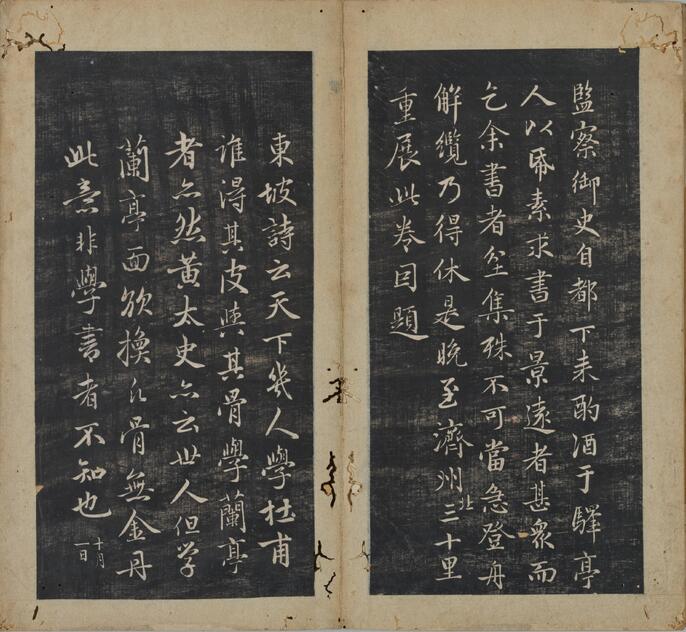 監察御史自都下来酌酒于驛亭
人以帋素求書于景遠者甚衆而
乞余書者坌集殊不可當急登舟
解纜乃得休是晚至濟州北三十里
重展此卷因題
東坡詩云天下幾人學杜甫
誰得其皮與其骨學蘭亭
者亦然黃太史亦云世人但学
蘭亭面欲換凡骨無金丹
此意非學書者不知也十月
一日